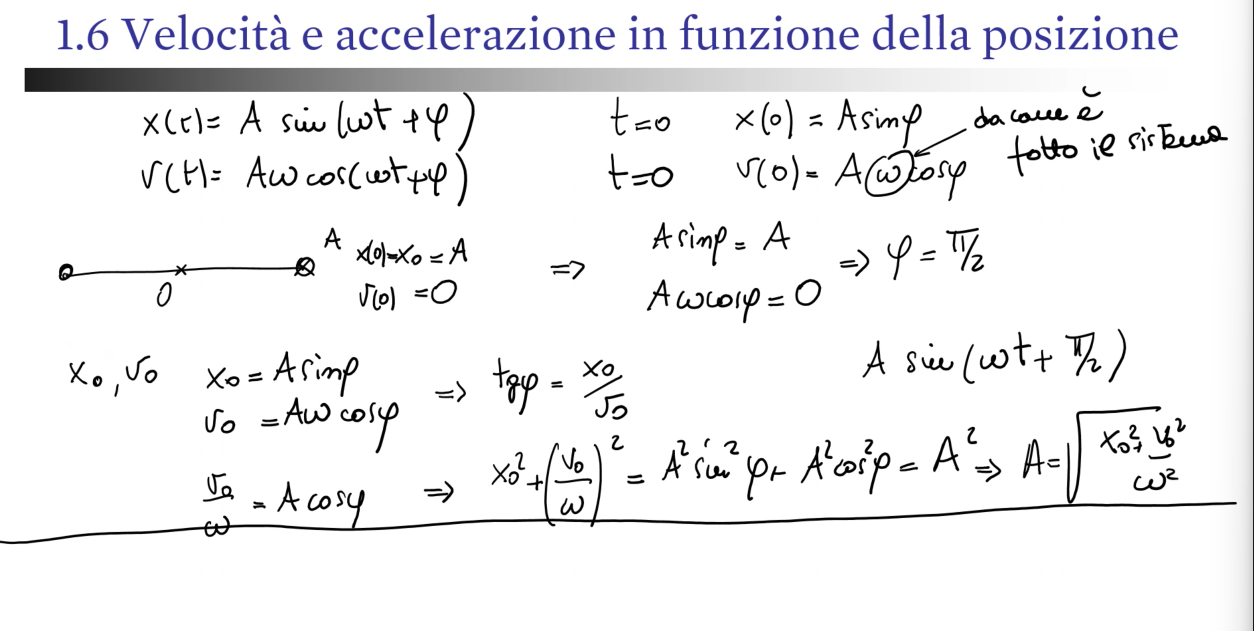 1.6 Velocità e accelerazione in funzione della posizione
x(t)= A sin(ωt+φ) t=0 x(0) = A sinφ da come è
fatto il sistema
v(t)= Aω cos(ωt+φ) t=0 v(0)= A ω cosφ
A x(0)=x₀=A A sinφ = A
O v(0) =0 => Aω cosφ = 0 => φ = π/2
x₀, v₀ x₀ = A sinφ => tgφ = x₀/v₀ A sin(ωt+ π/2)
v₀ = Aω cosφ
v₀/ω = A cosφ => x₀² + (v₀/ω)² = A² sin²φ + A² cos²φ = A² => A = √(x₀² + v₀²/ω²)